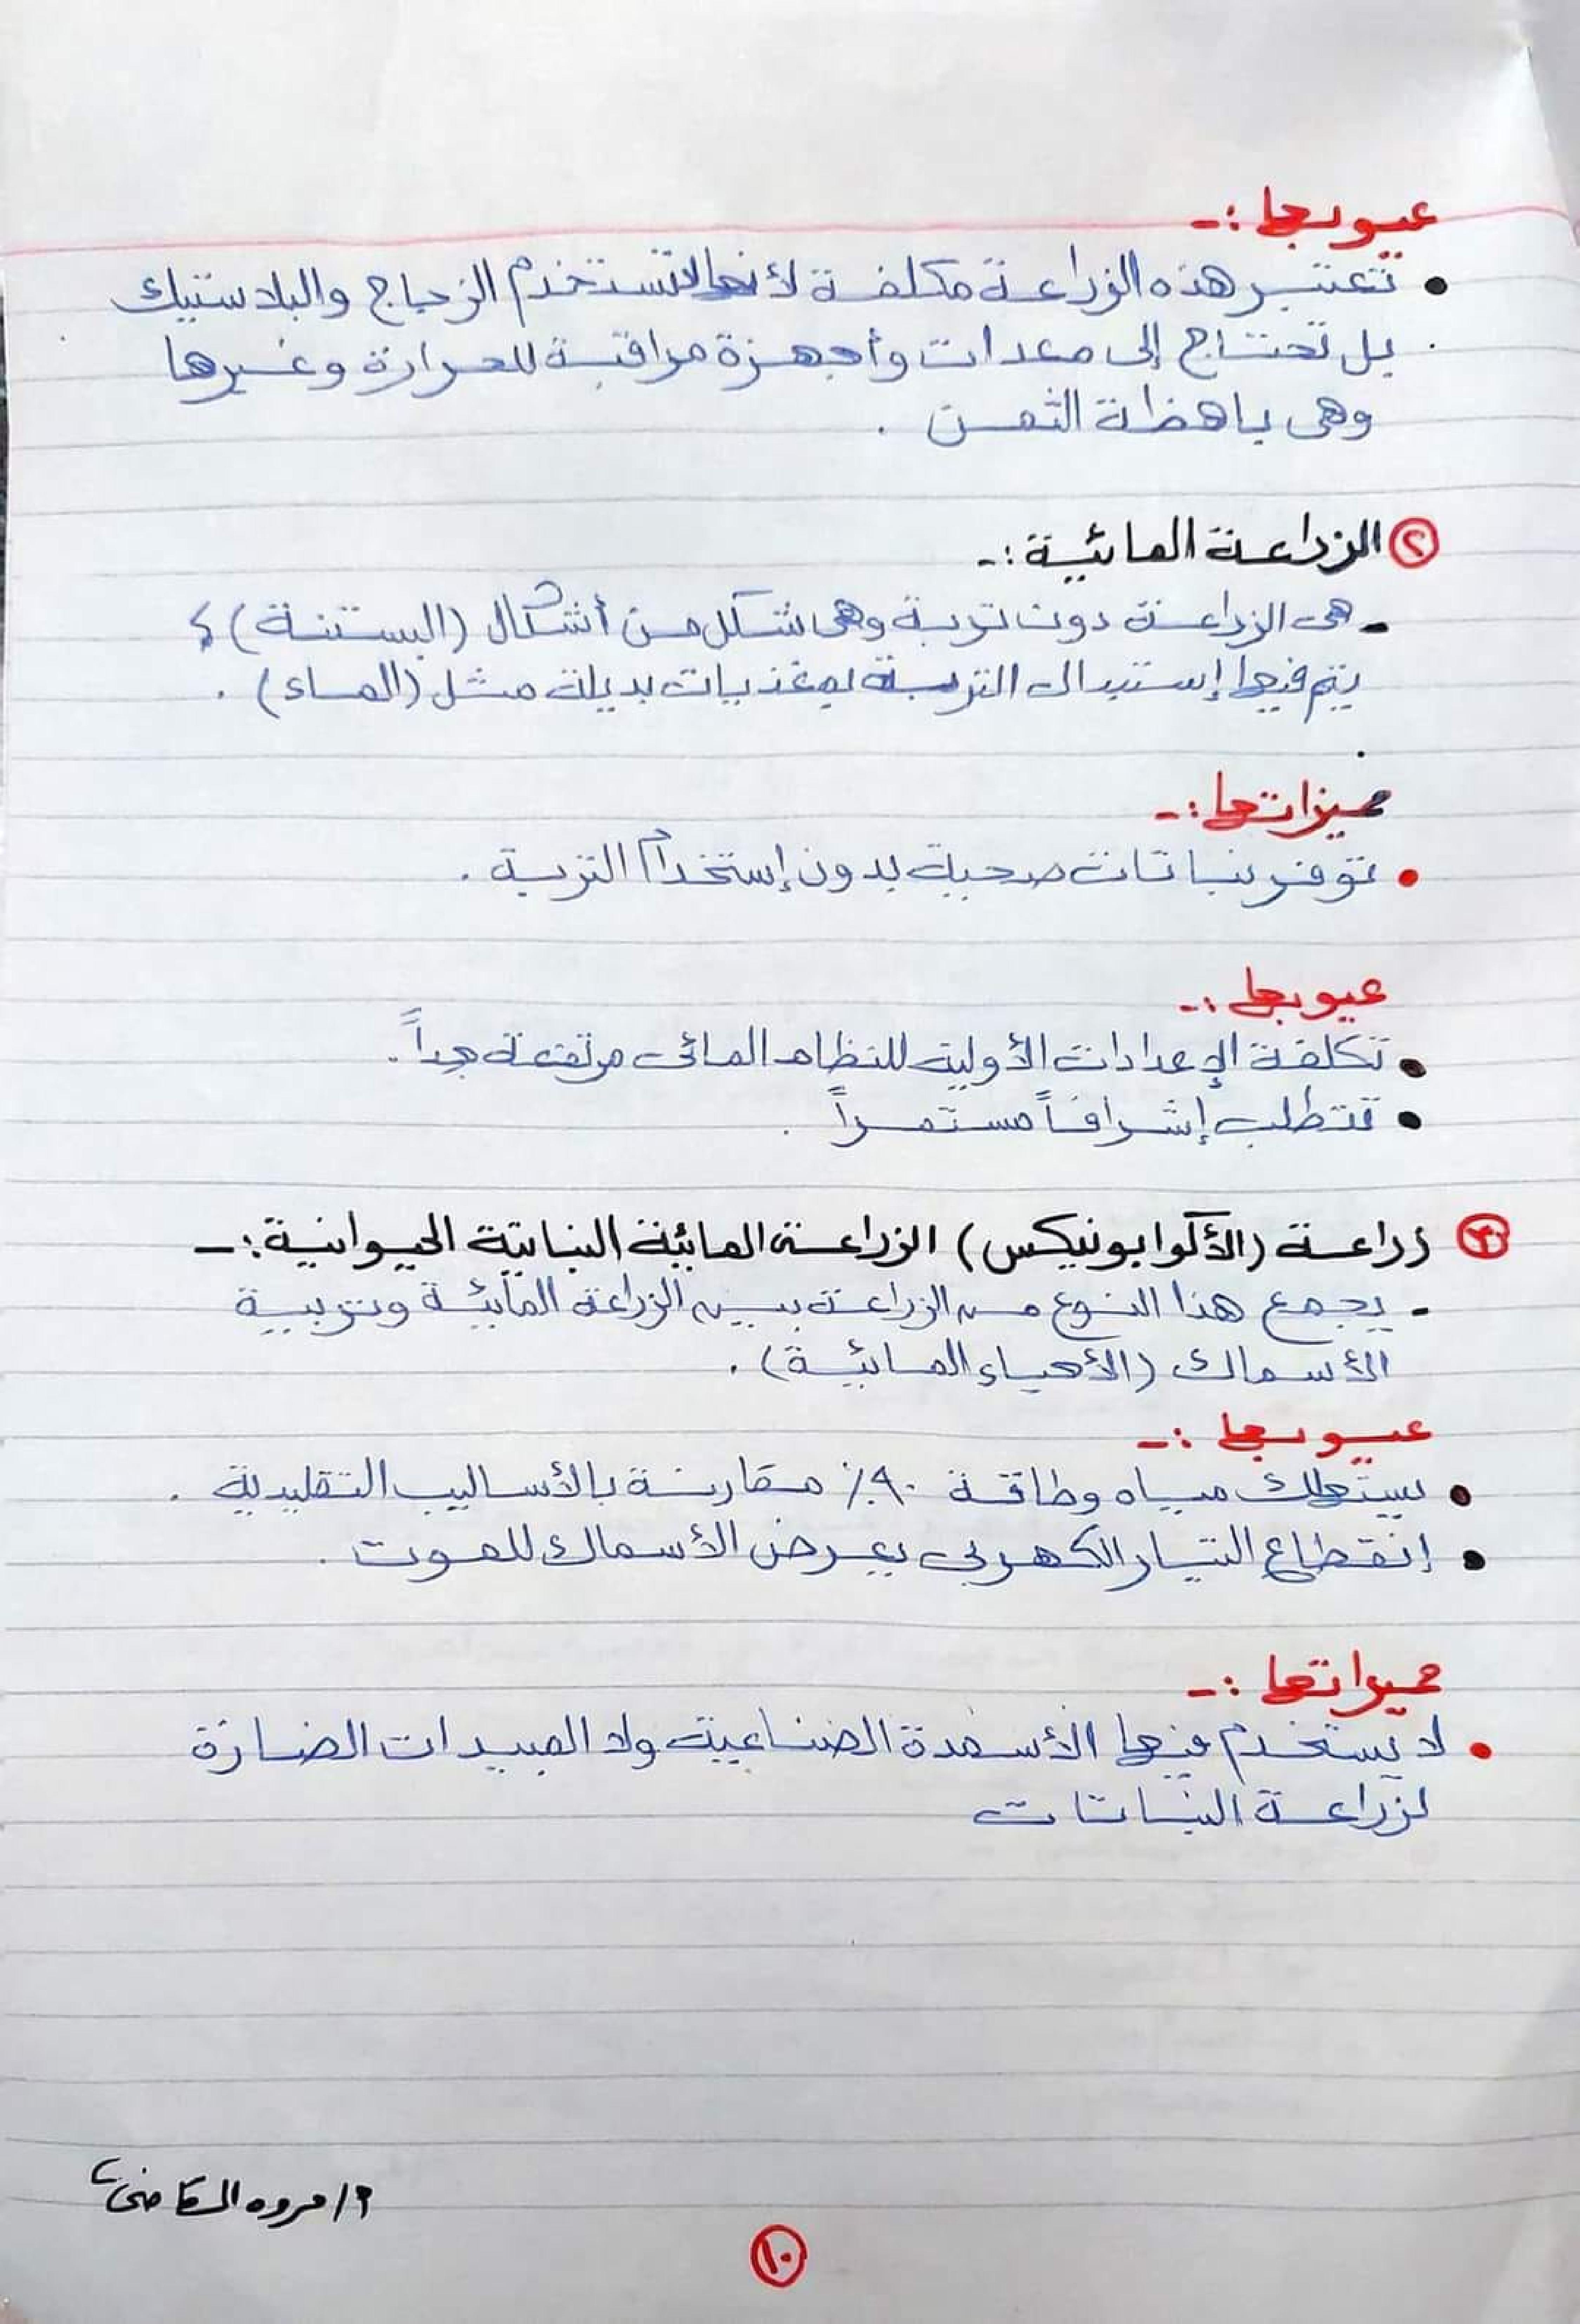 عيوبها :-
• تعتبر هذه الزراعة مكلفة لأنها لاتستخدم الزجاج والبلاستيك
بل تحتاج إلى معدات وأجهزة مراقبة للحرارة وغيرها
وهى باهظة الثمن .
٢ الزراعة المائية :-
- هى الزراعة دون تربة وهى شكل من أشكال (البستنة) ؛
يتم فيها إستبدال التربة بمغذيات بديلة مثل (الماء) .
مميزاتها :-
• توفر نباتات صحية بدون إستخدام التربة .
عيوبها :-
• تكلفة الإعدادات الأولية للنظام المائى مرتفعة جداً .
• تتطلب إشرافاً مستمراً .
٣ زراعة (الأكوابونيكس) الزراعة المائية النباتية الحيوانية :-
- يجمع هذا النوع من الزراعة بين الزراعة المائية وتربية
الأسماك (الأحياء المائية) .
عيوبها :-
• يستهلك مياه وطاقة ٩٠٪ مقارنة بالأساليب التقليدية .
• إنقطاع التيار الكهربى يعرض الأسماك للموت .
مميزاتها :-
• لا يستخدم فيها الأسمدة الصناعية ولا المبيدات الضارة
لزراعة النباتات
أ/ مروه القاضى
١٠